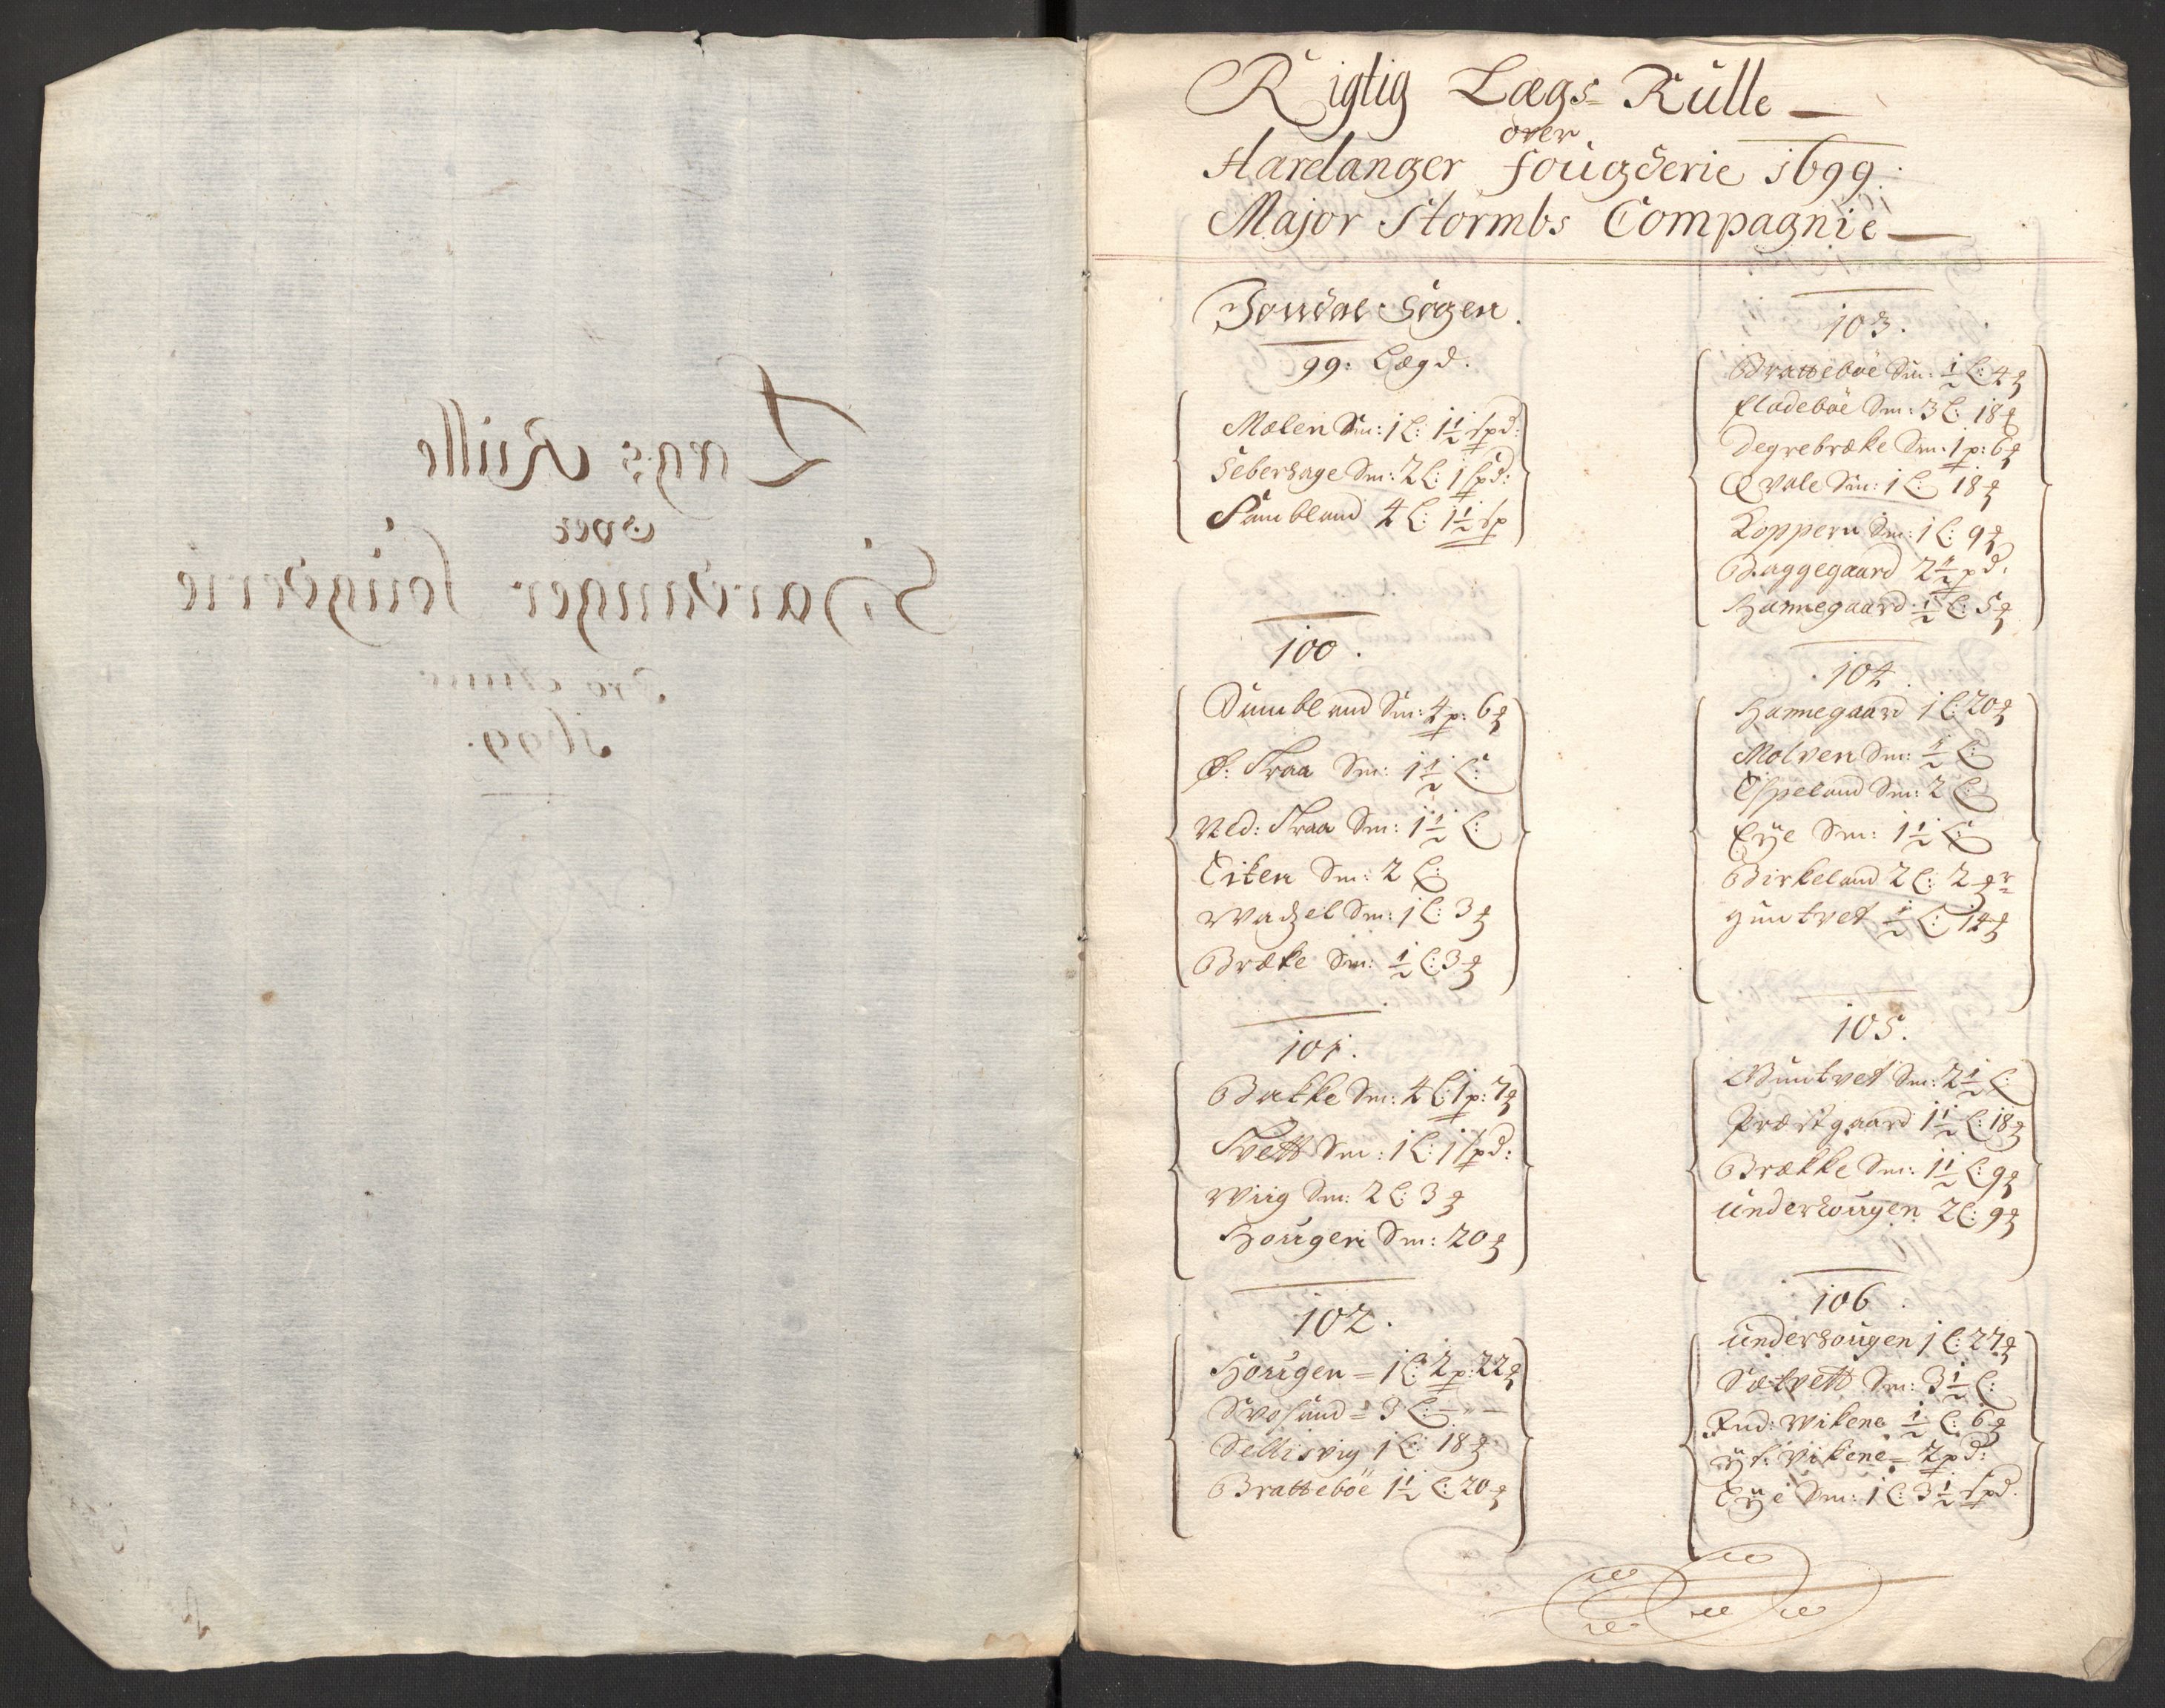 Rigtig Lægs Rulle
over
Hardanger fougderie 1699
Major Stormbs Compagnie
Jondal Sogen.
99: Lægd:
Mælen Sm: 1 L: 1½ spd:
Sebershage Sm: 2 L: 1 spd:
Sambland 4 L: 1½ sp
100.
Sambland Sm: 4 p: 6
Ø: Traa Sm: 1½ L:
Ned: Traa Sm: 1½ L:
Eiken Sm: 2 L:
Wadzel Sm: 1 L: 3
Bræke Sm: ½ L: 3
101.
Bakke Sm: 4 L: 1 p: 7
Tvett Sm: 1 L: 1 spd:
Wiig Sm: 2 L: 3
Hougen Sm: 20
102.
Hougen = 1 L: 2 p: 22
Svosand = 3 L:
Sellisvig 1 L: 18
Brattebøe 1½ L: 20
103.
Brattebøe Sm: ½ L: 4
Fladebøe Sm: 3 L: 18
Degrebræke Sm: 1 p: 6
Qvale Sm: 1 L: 18
Koppern Sm: 1 L: 9
Baggegaard 2½ pd.
Hannegaard: ½ L: 5
104.
Hannegaard 1 L: 20
Molven Sm: ½ L:
Espeland Sm: 2 L:
Eÿe Sm: 1½ L:
Birkeland 2 L: 2
guntvet ½ L: 14
105.
Guntvet Sm: 2½ L:
Præstgaard 1½ L: 18
Brække Sm: 1½ L: 9
Underhougen 2 L: 9
106.
Underhougen 1 L: 27
Sætvett Sm: 3½ L:
Ind: Wikene ½ L: 6
Yt: Vikene = 2 pd:
Eÿe Sm: 1 L: 3½ spd.
Lægs Rulle
over
Hardanger fougderie
Pro Anno
1699.